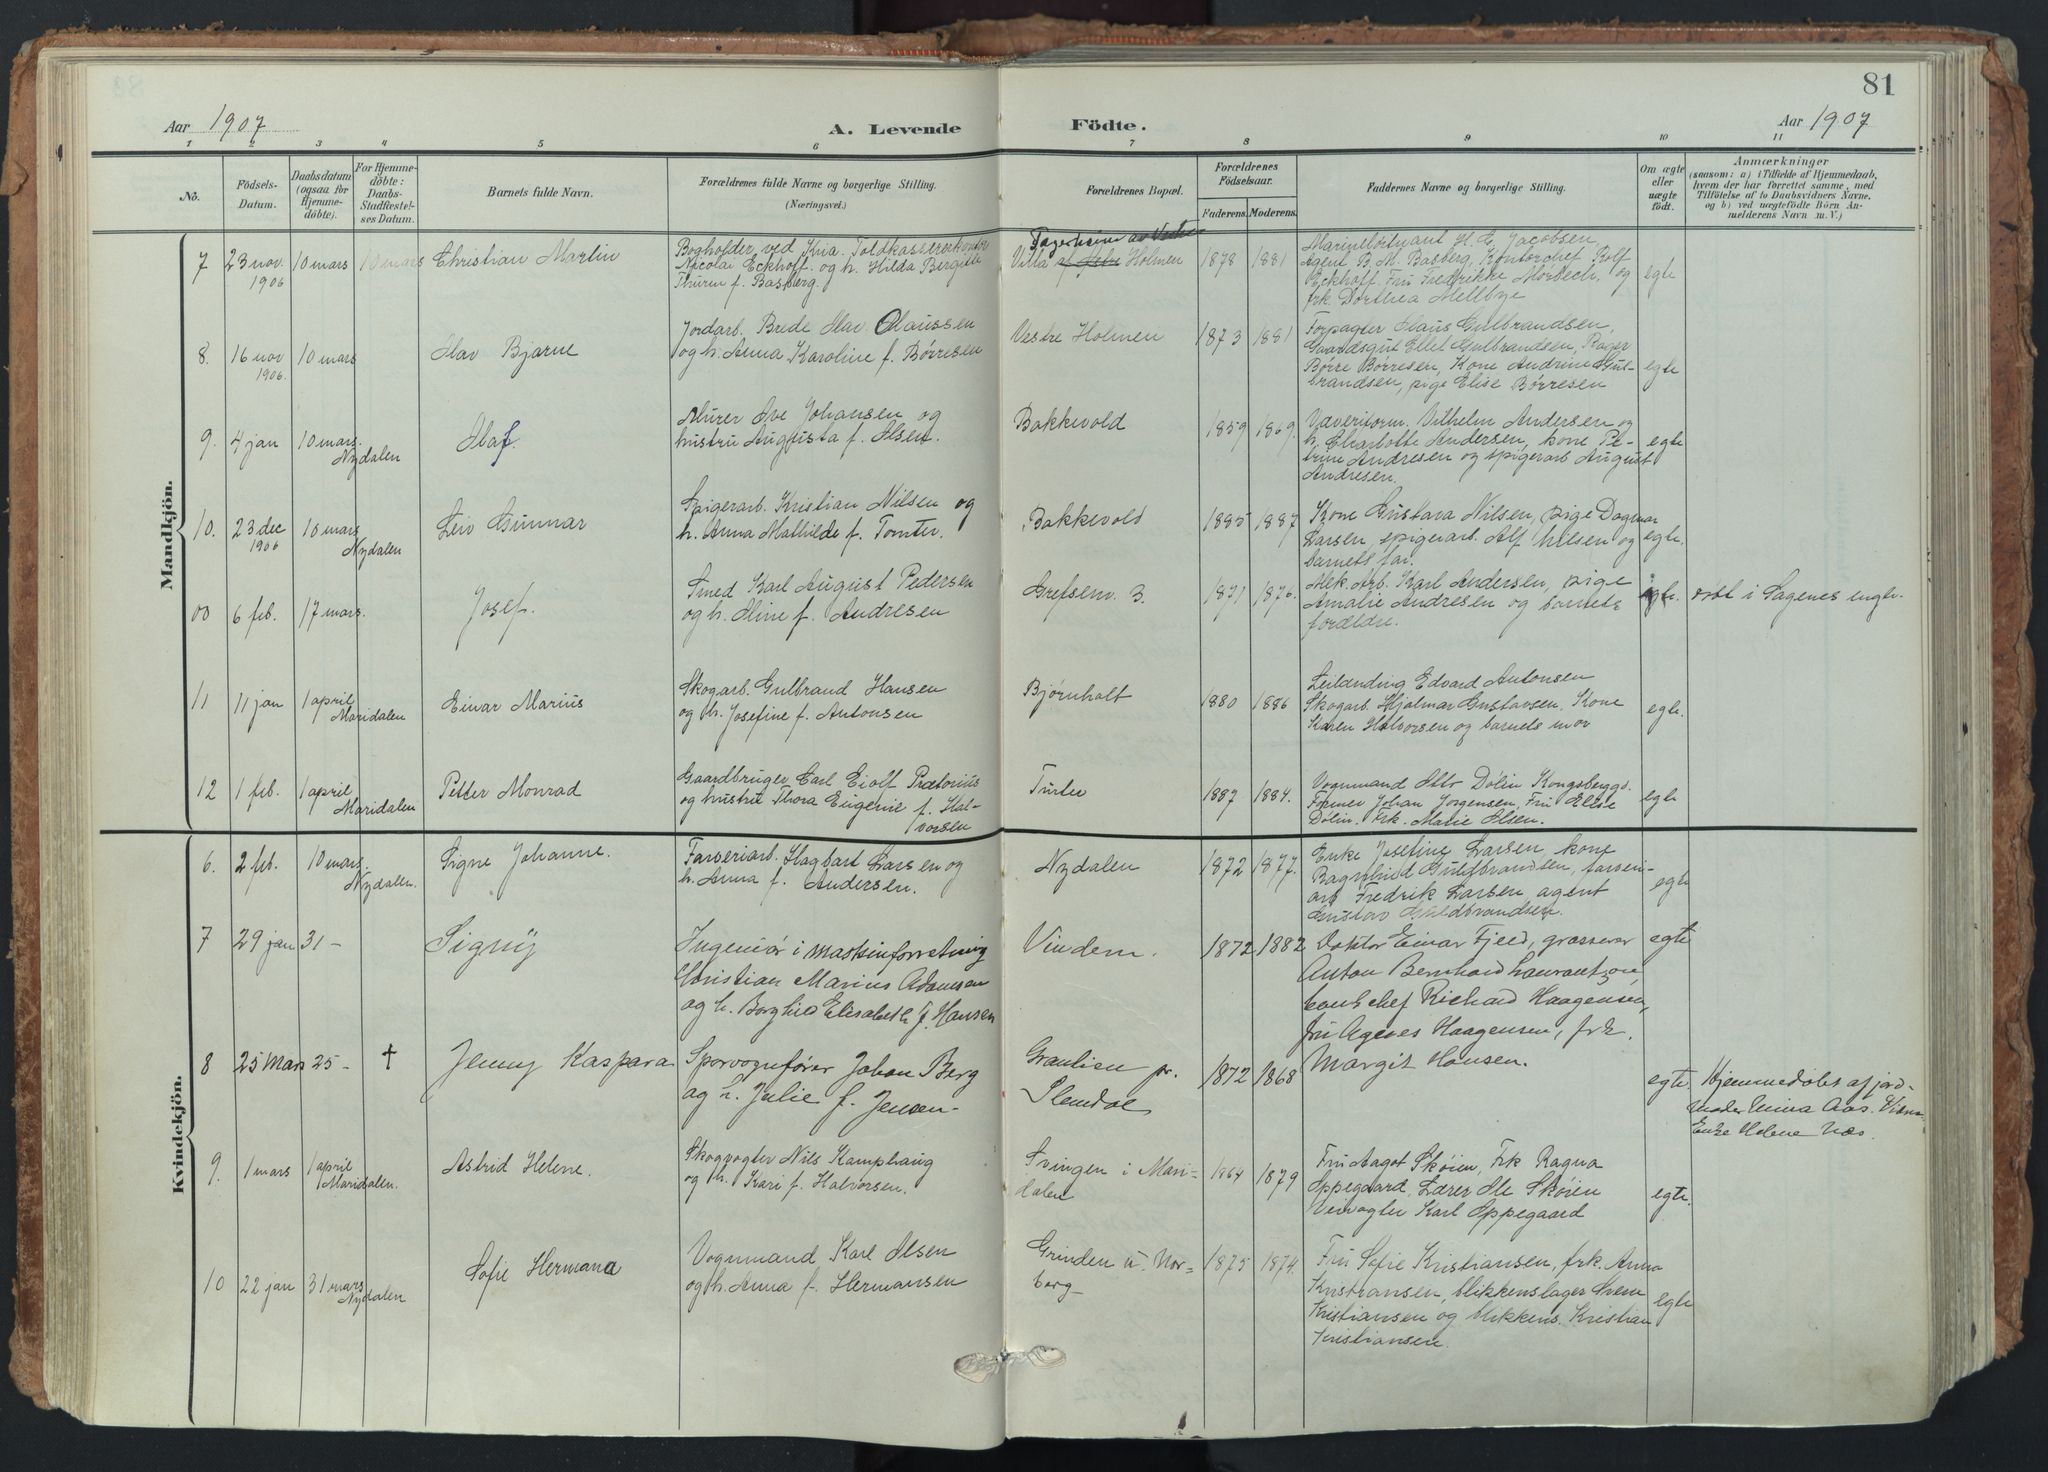 81
Aar 1907
A. Levende
Födte.
Aar 1907
1 2 3 4 5 6 7 8 9 10 11
No.
Födsels-
Datum.
Daabsdatum
(ogsaa for
Hjemme-
döbte).
For Hjemme-
döbte:
Daabs-
Stadfæstel-
ses Datum.
Barnets fulde Navn.
Forældrenes fulde Navne og borgerlige Stilling.
(Næringsvei.)
Forældrenes Bopæl.
Forældrenes
Födselsaar.
Faderens.
Moderens.
Faddernes Navne og borgerlige Stilling.
Om ægte
eller
uægte
födt.
Anmærkninger
(saasom: a) i Tilfælde af Hjemmedaab,
hvem der har forrettet samme, med
Tilföielse af to Daabsvidners Navne,
og b) ved uægtefödte Börn An-
melderens Navn m. V.)
Mandkjön.
7 23 nov. 1906 10 mars 10 mars Christian Martin
Bogholder ved Kria. Toldkassererkontor
Nicolai Eckhoff og h. Hilda Birgitte
Thurm f. Basberg.
Villa Holmen 1878 1881
Marineløitnant H. C. Jacobsen,
Agent B. M. Basberg, Kontorchef Rolf
Eckhoff. Fru Fredrikke Morbech, og
frk Dorthea Mellbye
egte
8. 16 nov 1906. 10 mars Olav Bjarne
Jordarb. Brede Olav Olaussen
og h. Anna Karoline f. Børresen
Vestre Holmen 1873 1881
Forpagter Olaus Gulbrandsen,
Gaardsgut Ellef Gulbrandsen, Bager
Børre Børresen, Kone Andrine Gul-
brandsen, pige Elise Børresen
egte
9. 4 jan 10 mars. Nydalen Olaf.
Murer Ove Johansen og
hustru Augusta f. Olsen.
Bakkevold 1859 1869.
Væveriform. Vilhelm Andersen og
h. Charlotte Andersen, kone Pe-
trine Andresen og spigerarb August
Andresen.
egte
10. 23 dec 1906 10 mars Nydalen Leiv Gunnar
Spigerarb. Kristian Nilsen og
h. Anna Mathilde f. Tomter.
Bakkevold 1885 1887
Kone Gustava Nilsen, pige Dagmar
Larsen, spigerarb. Alf Nilsen og
barnets far.
egte.
00 6 feb. 17 mars. Josef.
Smed Karl August Pedersen
og h. Aline f. Andresen
Grefsenv. 3. 1871 1876.
Mek. Arb. Karl Andersen, pige
Amalie Andresen og barnets
forældre.
egte. døbt i Sagenes menigh.
11 11 jan 1 april Maridalen Einar Marius
Skogarb. Gulbrand Hansen
og h. Josefine f. Antonsen
Bjørnholt 1880 1886
Leilænding Edvard Antonsen
Skogarb. Hjalmar Gustavsen, Kone
Karen Halvorsen og barnets mor
egte.
12 1 feb. 1 april Maridalen Petter Monrad
Gaardbruger Carl Eiolf Prætorius
og hustru Thora Eugenie f. Hal-
vorsen
Turter 1887 1884.
Vognmand Otto Dølin Kongsberggd.
Former Johan Jørgensen, Fru Elise
Dølin. Frk. Marie Olsen.
egte
Kvindekjön.
6. 2 feb. 10 mars. Nydalen. Signe Johanne.
Farveriarb. Hagbart Larsen og
h. Anna f. Andersen.
Nydalen 1872 1877.
Enke Josefine Larsen, kone
Ragnhild Guldbrandsen, farveri-
arb Fredrik Larsen agent
Gustav Guldbrandsen.
egte
7 29 jan 31 - Signy
Ingeniør i maskinforretning
Christian Marius Adamsen
og h. Borghild Elisabeth f. Hansen
Vindern. 1872 1882
Doktor Einar Fjeld, grosserer
Anton Bernhard Laurantzon,
bankchef Richard Haagensen,
fru Agnes Haagensen, frk.
Margit Hansen.
egte
8 25 Mars 25 - † Jenny Kaspara
Sporvognfører Johan Berg
og h. Julie f. Jensen -
Graulien pr.
Slemdal
1872 1868
egte. Hjemmedøbt af jord-
moder Mina Aas. Vidne
Enke Helene Næs.
9. 1 mars 1 april Maridalen. Astrid Helene.
Skogvogter Nils Kamphaug
og h. Kari f. Halvorsen.
Svingen i Mari-
dalen
1864 1879
Fru Aagot Skøien, Frk Ragna
Oppegaard, Lærer Ole Skøien
Veivogter Karl Oppegaard
egte.
10 22 jan 31 mars Nydalen Sofie Hermana
Vognmand Karl Olsen
og h. Anna f. Hermansen
Grinden u. Nor-
berg
1875 1874.
Fru Sofie Kristiansen, frk. Anna
Kristiansen, blikkenslager
Kristiansen og blikkens. Kristian
Kristiansen.
egte